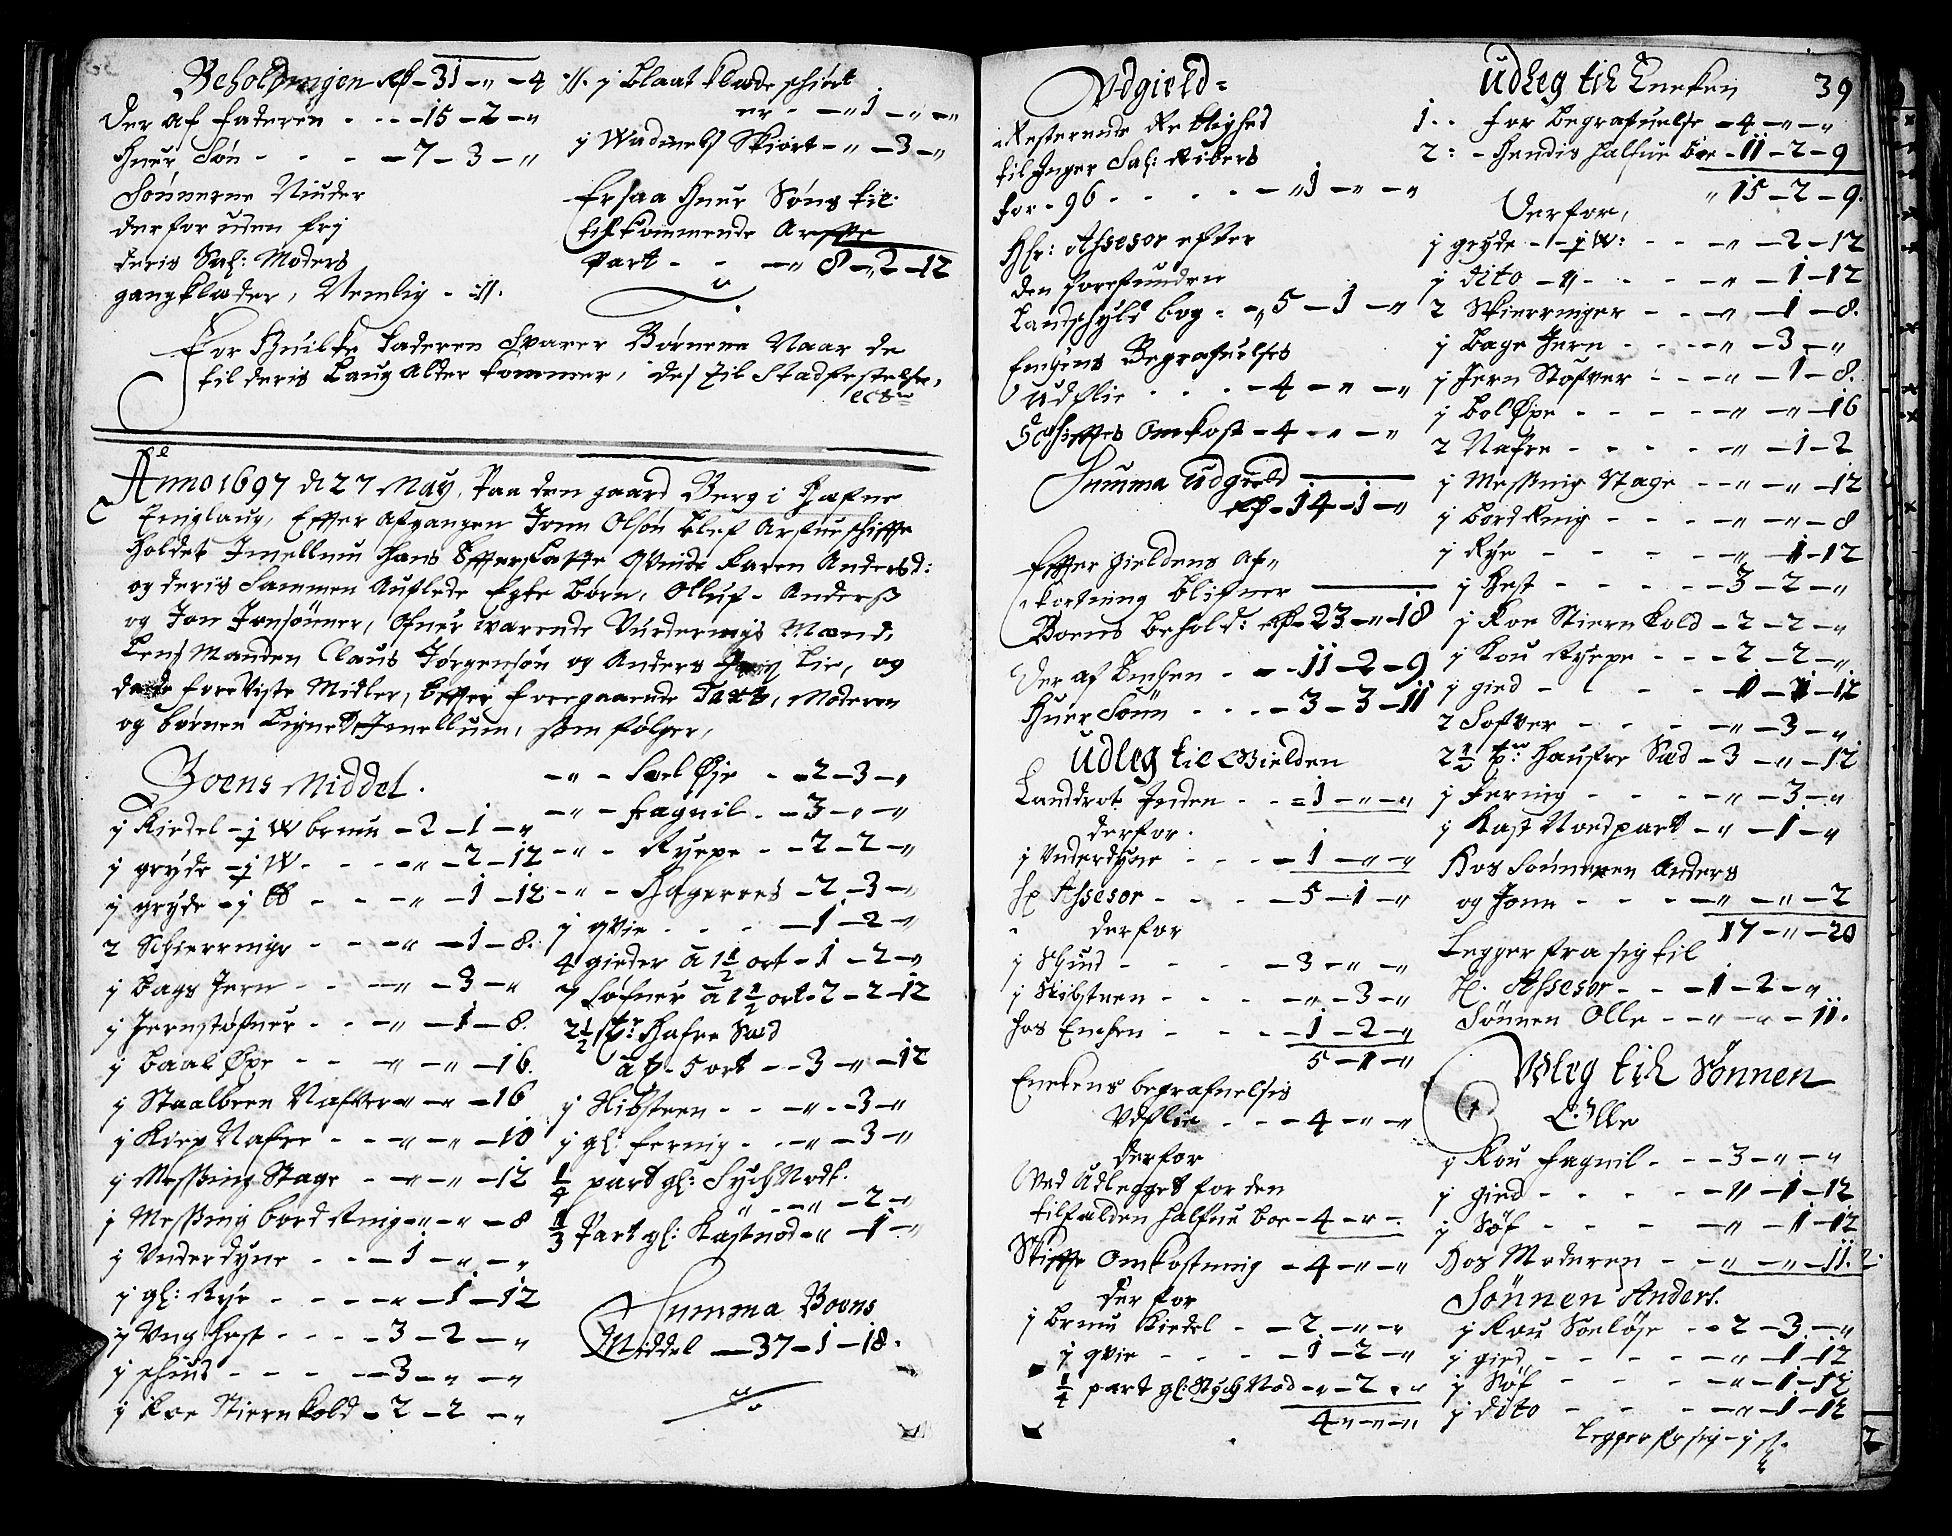 Beholdningen Rdr - 31 - " - 4
Der af faderen - - - 15 - 2 - "
Huer Søn - - - 7 - 3 - "
Sønnerne Niuder
derfor uden frj
deris Sal: Moders
gangklæder, Nemlig - ://:
://: j blaat klæde schiørt
er - - " 1 - " - "
j Wadmels Skiørt - " - 3 - "
Er saa Huer Søns til
tilkommende Arffue
Part - - - " 8 - 2 - 12
For Huilke faderen Svarer Børnene Naar de
til deris Laug Alder kommer, des til Stadfestelse,
Anno 1697 d 27 May, Paa den gaard Berg i Hafne
Effter Afgangen Jonn Olsøn blef Arfueschiffte
Holdet Imellum Hans Effterlatte Qvinde Karen Andersd:
og deris Sammen Auflede Egte Børn, Olluf - Anders
og Jon Jonsønner, Ofuer warende Vurderings Mænd,
Lens Manden Claus Jørgensøn og Anders Lie, og
da de foreViste Midler, Effter foregaaende Taxt, Moderen
og børnen Lignet Imellum, som følger,
Boens Middel.
j Kiedel - j W brun - 2 - 1 - "
j gryde - j W - - - " - 2 - 12
j gryde - j - - " - 1 - 12
2 Schierringer - - " - 1 - 8.
j bags Jern - - " - 3 - "
j Jernstøfuer - - " - 1 - 8.
j baal Øxe - - " - " - 16.
j Staalbeen Nafver - " - " - 16
j Kiep Nafre - - " - " - 10
j Messing Stage - " - " - 12
j Messing bord Ring - " - " - 8
j Underdyne - - 1 - " - "
j gl: Rye - - - " - 1 - 12
j Ung Hest - - - 3 - 2 - "
j schiud - - - 3 - " - "
j Koe Stiernkold - 2 - 2 - "
- " - Sæl Øie - - 2 - 3 - "
- " - Fagnil - - 3 - " - "
- " - Ryepe - - 2 - 2 - "
- " - Hageroes - 2 - 3 - "
j qvie - - - 1 - 2 - "
4 gieder a 1 1/2 ort - 1 - 2 - "
7 Søfuer a 1 1/2 ort - 2 - 2 - 12
2 1/2 tr: Hafre Sæd
a tr - 5 ort - - 3 - " - 12
j Slibsteen - - " - 3 - "
j gl: ferring - - " - 3 - "
1/4 part gl: Sych Nodt.
" - " - 2 - "
1/3 Part gl: Kastnod - " - 1 - "
Summa Boens
Middel - 37 - 1 - 18.
Udgield =
Resterende Rettighed
til Inger Sal: Ribers
for - 96 - - - - " 1 - " - "
Hr: Assesor efter
den forefunden
Landschyld bog - " 5 - 1 - "
Enchens Begrafuelses
Udflie - - - 4 - " - "
Schifftes Omkost - 4 - " - "
Summa Udgield
Rdr - 14 - 1 - "
Effter gieldens Af-
kortning blifuer
Boens behold: Rdr - 23 - " - 18
Der af Enchen - - 11 - 2 - 9
Huer Sønn - - - 3 - 3 - 11
Udleg til Gielden
Landdrot Inden - - 1 - " - "
derfor.
j Underdyne - - - 1 - " - "
H. Assesor - - - 5 - 1 - "
derfor
j Schiud - - - 3 - " - "
j Slibsteen - - - " - 3 - "
hos Enchen - - - 1 - 2 - "
5 - 1 - "
Enckens begrafuelses
Udflie - - 4 - " - "
derfor
Ved Udlegget for den
tilfalden halfue boe - 4 - " -
Skiffte Omkostning - 4 - " - "
derfor
j brun Kiedel - - 2 - " - "
j qvie - - - 1 - 2 - "
1/4 part gl: Sych Nod - " - 2 - "
4 - " - "
Udleg til Encken 39
1 - - for Begrafuelse - 4 - " - "
2: - Hendis halfue boe - 11 - 2 - 9
" 15 - 2 - 9.
Derfor,
j gryde - j W: - - " - 2 - 12
j dito - " - - - " - 1 - 12
2 Skierringer - - " - 1 - 8.
j Bage Jern - - - " - 3 - "
j Jern Støfver - - " - 1 - 8.
j bol Øxe - - - - " - " - 16
2 Nafre - - - - " - 1 - 2
j Messing Stage - - " - " - 12
j bord Ring - - - " - " - 8
j Rye - - - - " - 1 - 12
j Hest - - - - 3 - 2 - "
j Koe Stiernkold - 2 - 2 - "
j Kou Ryepe - - - 2 - 2 - "
j gied - - - - " - 1 - 12
2 Søfver - - - " - 3 - "
2 1/2 tr: Haufre Sæd - 3 - " - 12
j Fering - - - - " - 3 - "
j Kast Nodpart - " - 1 - "
Hos Sønneren Anders
og Jonn - - - " - " - 2
17 - " - 20
Legger fra sig til
H. Assesor - - 1 - 2 - "
Sønnen Olle - - " - " - 11.
Udleg til Sønnen
Olle
j Kou Fagnil - - - 3 - " - "
j gied - - - - " - 1 - 12
j Søf - - - - " - 1 - 12
Hos Moderen - - " - " - 11. 2.
Sønnen Anders.
j Kou Soeløje - - 2 - 3 - "
j gied - - - - " - 1 - 12
j Søf - - - " - 1 - 12
j dito - - - " - 1 - 12
Legger fra sig - j s.